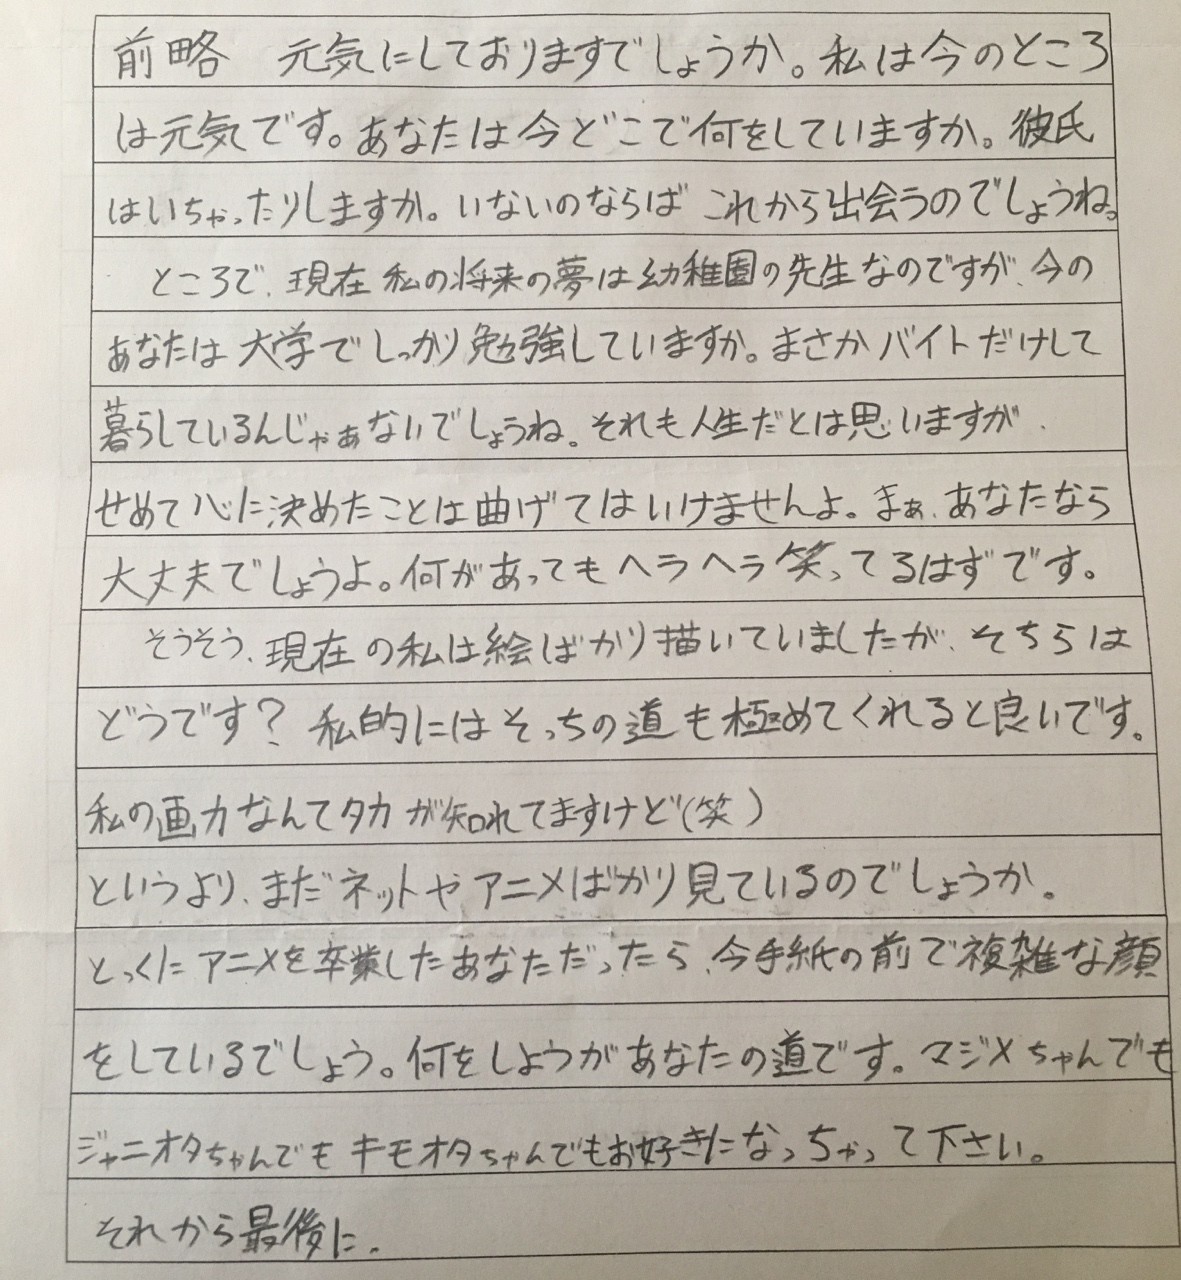 前略　元気にしておりますでしょうか。私は今のところ
は元気です。あなたは今どこで何をしていますか。彼氏
はいちゃったりしますか。いないのならばこれから出会うのでしょうね。
ところで、現在私の将来の夢は幼稚園の先生なのですが、今の
あなたは大学でしっかり勉強していますか。まさかバイトだけして
暮らしているんじゃぁないでしょうね。それも人生だとは思いますが、
せめて心に決めたことは曲げてはいけませんよ。まぁ、あなたなら
大丈夫でしょうよ。何があってもヘラヘラ笑ってるはずです。
そうそう、現在の私は絵ばかり描いていましたが、そちらは
どうです？私的にはそっちの道も極めてくれると良いです。
私の画力なんてタカが知れてますけど(笑)
というより、まだネットやアニメばかり見ているのでしょうか。
とっくにアニメを卒業したあなただったら、今手紙の前で複雑な顔
をしているでしょう。何をしようがあなたの道です。マジメちゃんでも
ジャニオタちゃんでもキモオタちゃんでもお好きになっちゃって下さい。
それから最後に、